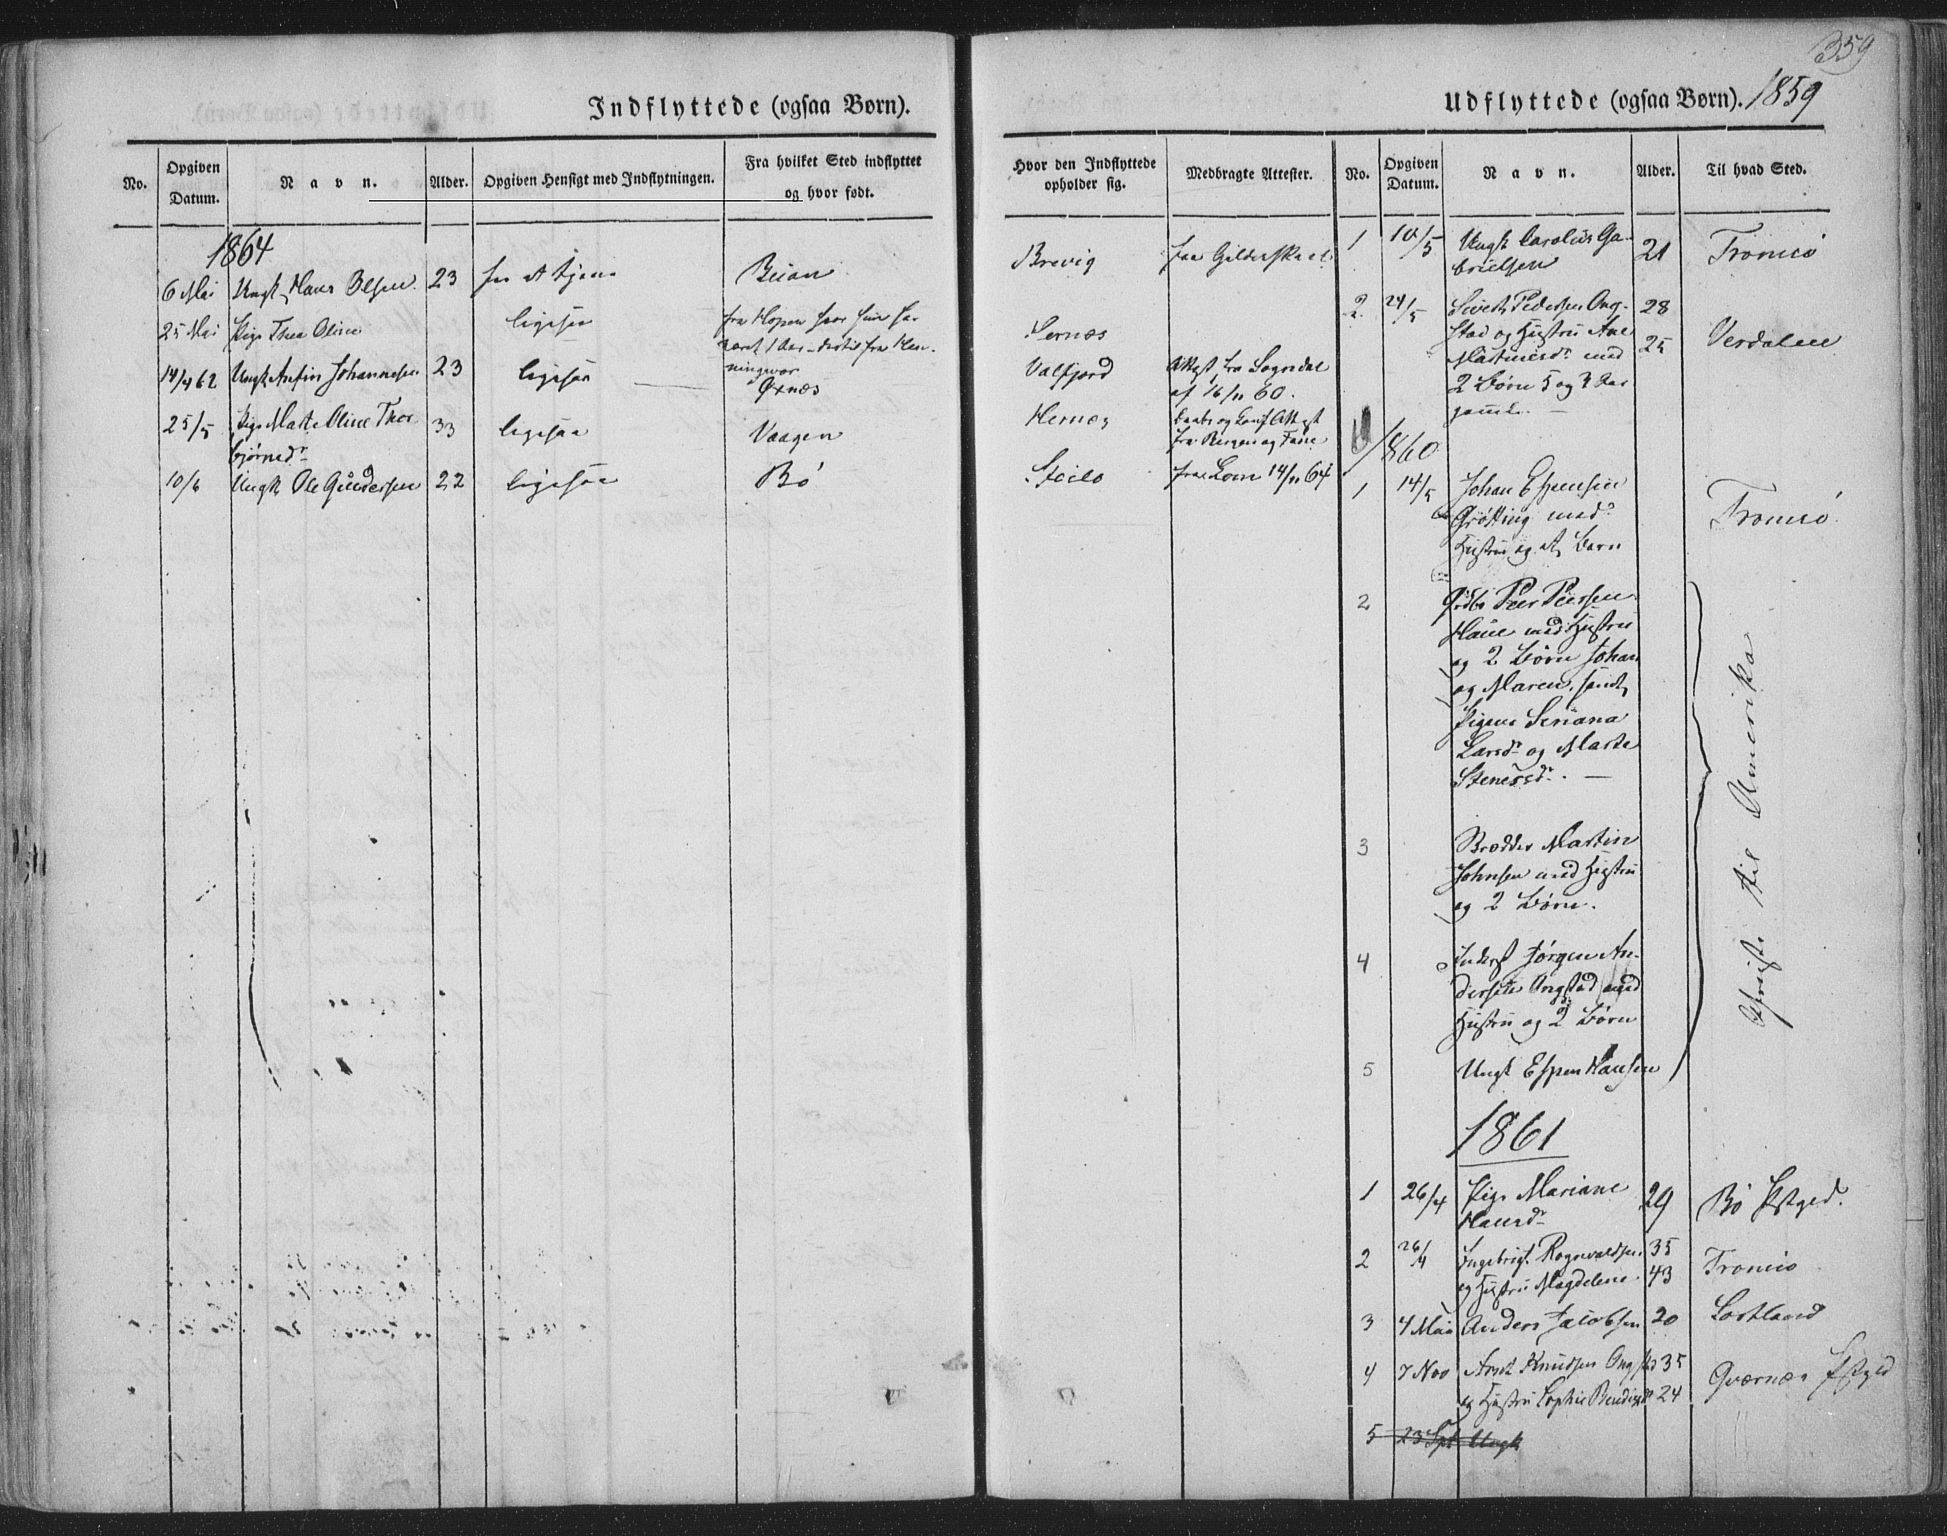 359
Indflyttede (ogsaa Børn).
Udflyttede (ogsaa Børn). 1859
No.
Opgiven Datum.
Navn.
Alder.
Opgiven Hensigt med Indflytningen.
Fra hvilket Sted indflyttet og hvor født.
Hvor den Indflyttede opholder sig.
Medbragte Attester.
No.
Opgiven Datum.
Navn.
Alder.
Til hvad Sted.
1864
6 Mai Ungk Hans Olsen 23 for at tjene Beian Brevig fra Gildeskaal
25 Mai Pige Thea Oline ligesaa fra Hopen hvor hun har
været 1 Aar - dertil fra Hen-
ningvær
14/4 62 Ungk Anfin Johannesen 23 ligesaa Øxnæs Valfjord Attest fra Sogndal
af 16/11 60.
25/5 Pige Marte Oline Thor- 33 ligesaa Vaagen
bjørnsd. fra Bergen og Fane
10/6 Ungk Ole Gundersen 22 ligesaa Bø Steilo fra Lom 14/11 64
1 10/5 Ungk Carolius Ga- 21 Tromsø
brielsen
2 24/5 Sivert Pedersen Ong- 28
stad og Hustru Ane 25 Verdalen
Martinusdr med
2 Børn 5 og 3 Aar
gamle. —
1860
1 14/5 Johan Espensen
Grøtting med Tromsø
Hustru og et Barn
2 Peer Peersen
Haue med Hustru
og 2 Børn Johan
og Maren, samt
Pigerne Seriana
Larsdr og Marte
Stenersdr. —
3 Martin
Johnsen med Hustru
og 2 Børn.
4 Inderst Jørgen An-
dersen Ongstad med
Hustru og 2 Børn
5 Ungk Espen Hansen
til Amerika
1861
1 26/4 Pige Mariane 29 Bø Pstgjed.
Hansdr
2 26/4 Ingebrigt Rognvaldsen 35 Tromsø
og Hustru Magdelene 43
3 4 Mai Anders Jacobsen 20 Sortland
4 7 Nov Arnt Knudsen Ongstad 35 Qværnæs Pstgjed
og Hustru Sophie 24
5 23 Spt Ungk